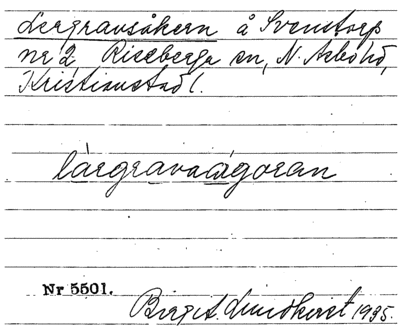 Lergravsåkern å Svenstorp
nr 2 Riseberga sn, N. Åsbo hd,
Kristianstad l.
lärgravaågoran
Nr 5501.
Birgit Lundkvist 1935.